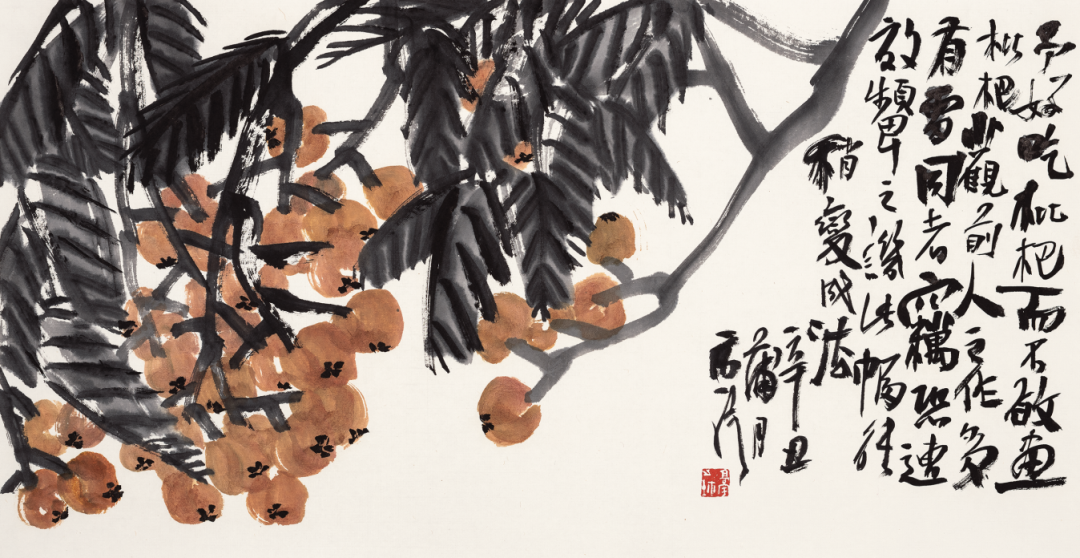 予好吃枇杷而不敢画
枇杷比觀前人之作多
有雷同者竊恐速
效顰之譏此幅
稍變成法
辛丑
蒲月